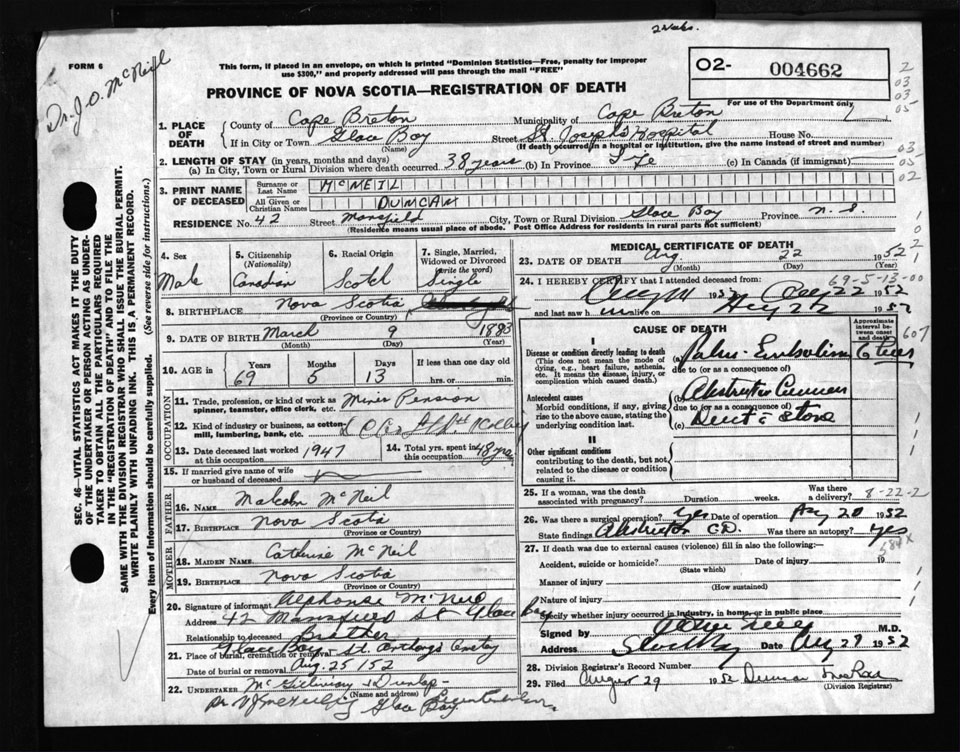 2 wks.
Dr. J. O. McNeil
FORM 6
This form, if placed in an envelope, on which is printed "Dominion Statistics—Free, penalty for improper
use $300," and properly addressed will pass through the mail "FREE"
O2- 004662
For use of the Department only
PROVINCE OF NOVA SCOTIA—REGISTRATION OF DEATH
1. PLACE OF DEATH
County of Cape Breton Municipality of Cape Breton
If in City or Town Glace Bay (Name) Street St. Joseph's Hospital House No.
(If death occurred in a hospital or institution, give the name instead of street and number)
2. LENGTH OF STAY (in years, months and days)
(a) In City, Town or Rural Division where death occurred 38 years (b) In Province Life (c) In Canada (if immigrant)
3. PRINT NAME OF DECEASED
Surname or Last Name McNEIL
All Given or Christian Names DUNCAN
RESIDENCE No. 42 Street Mansfield City, Town or Rural Division Glace Bay Province N.S.
(Residence means usual place of abode. Post Office Address for residents in rural parts not sufficient)
SEC. 46—VITAL STATISTICS ACT MAKES IT THE DUTY
OF THE UNDERTAKER OR PERSON ACTING AS UNDER-
TAKER TO OBTAIN ALL THE PARTICULARS REQUIRED
IN THE "REGISTRATION OF DEATH" AND TO FILE THE
SAME WITH THE DIVISION REGISTRAR WHO SHALL ISSUE THE BURIAL PERMIT.
WRITE PLAINLY WITH UNFADING INK. THIS IS A PERMANENT RECORD.
Every item of information should be carefully supplied. (See reverse side for instructions.)
4. Sex Male
5. Citizenship (Nationality) Canadian
6. Racial Origin Scotch
7. Single, Married, Widowed or Divorced (write the word) Single
8. BIRTHPLACE Nova Scotia
(Province or Country)
9. DATE OF BIRTH March 9 1883
(Month) (Day) (Year)
10. AGE in Years 69 Months 5 Days 13 If less than one day old hrs. or min.
OCCUPATION
11. Trade, profession, or kind of work as spinner, teamster, office clerk, etc. Miner Pension
12. Kind of industry or business, as cotton-mill, lumbering, bank, etc.
13. Date deceased last worked at this occupation 1947
14. Total yrs. spent in this occupation 48 yrs
15. If married give name of wife or husband of deceased
FATHER
16. Name Malcolm McNeil
17. Birthplace Nova Scotia
(Province or Country)
MOTHER
18. MAIDEN NAME Catherine McNeil
19. BIRTHPLACE Nova Scotia
(Province or Country)
20. Signature of informant Alphonse McNeil
Address 42 Mansfield St Glace Bay
Relationship to deceased Brother
21. Place of burial, cremation or removal Glace Bay St. Anthony's Cemetery
Date of burial or removal Aug. 25/52
22. UNDERTAKER McGillivray & Dunlap
(Name and address)
Glace Bay
MEDICAL CERTIFICATE OF DEATH
23. DATE OF DEATH Aug 22 1952
(Month) (Day)
69-5-13-00
24. I HEREBY CERTIFY that I attended deceased from
1952 to Aug 22 1952
and last saw him alive on Aug 22 1952
CAUSE OF DEATH
Approximate interval between onset and death
607
I
Disease or condition directly leading to death
(This does not mean the mode of dying, e.g., heart failure, asthenia, etc. It means the disease, injury, or complication which caused death.)
(a) Pulm. Embolism
due to (or as a consequence)
Antecedent causes
Morbid conditions, if any, giving rise to the above cause, stating the underlying condition last
(b)
due to (or as a consequence of)
(c) Duct c̄ stone
II
Other significant conditions
contributing to the death, but not related to the disease or condition causing it.
25. If a woman, was the death associated with pregnancy? Duration weeks. Was there a delivery?
8-22-2
26. Was there a surgical operation? Yes Date of operation Aug 20 1952
State findings Obstruction C.D. Was there an autopsy? Yes
27. If death was due to external causes (violence) fill in also the following:—
Accident, suicide or homicide? Date of injury 19
(State which)
Manner of injury
(How sustained)
Nature of injury
Specify whether injury occurred in industry, in home, or in public place
Signed by M.D.
Date Aug 29 1952
28. Division Registrar's Record Number
29. Filed August 29 1952
(Division Registrar)